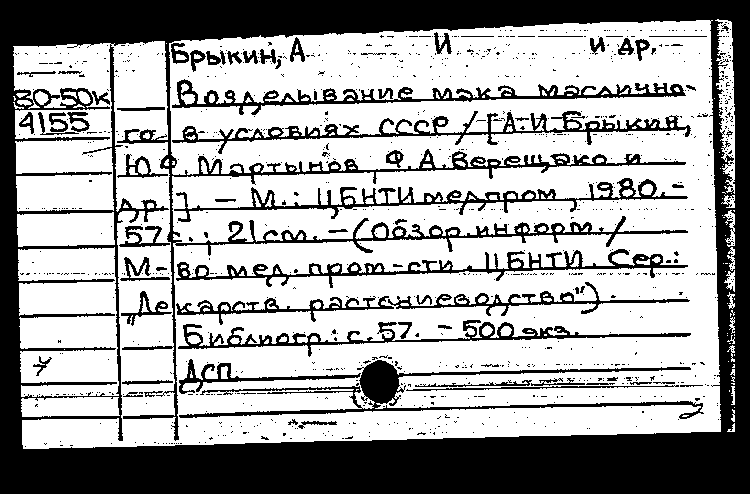 Брыкин, А И и др.
80-50к Возделывание мака маслично-
4155 го в условиях СССР / [А.И.Брыкин,
Ю.Ф. Мартынов, Ф.А.Верещако и
др.]. – М.: ЦБНТИ медпром, 1980.–
57с.; 21см. –(Обзор.информ./
М-во мед. пром-сти. ЦБНТИ. Сер.:
"Лекарств. растениеводство").
Библиогр.: с.57. – 500 экз.
Дсп